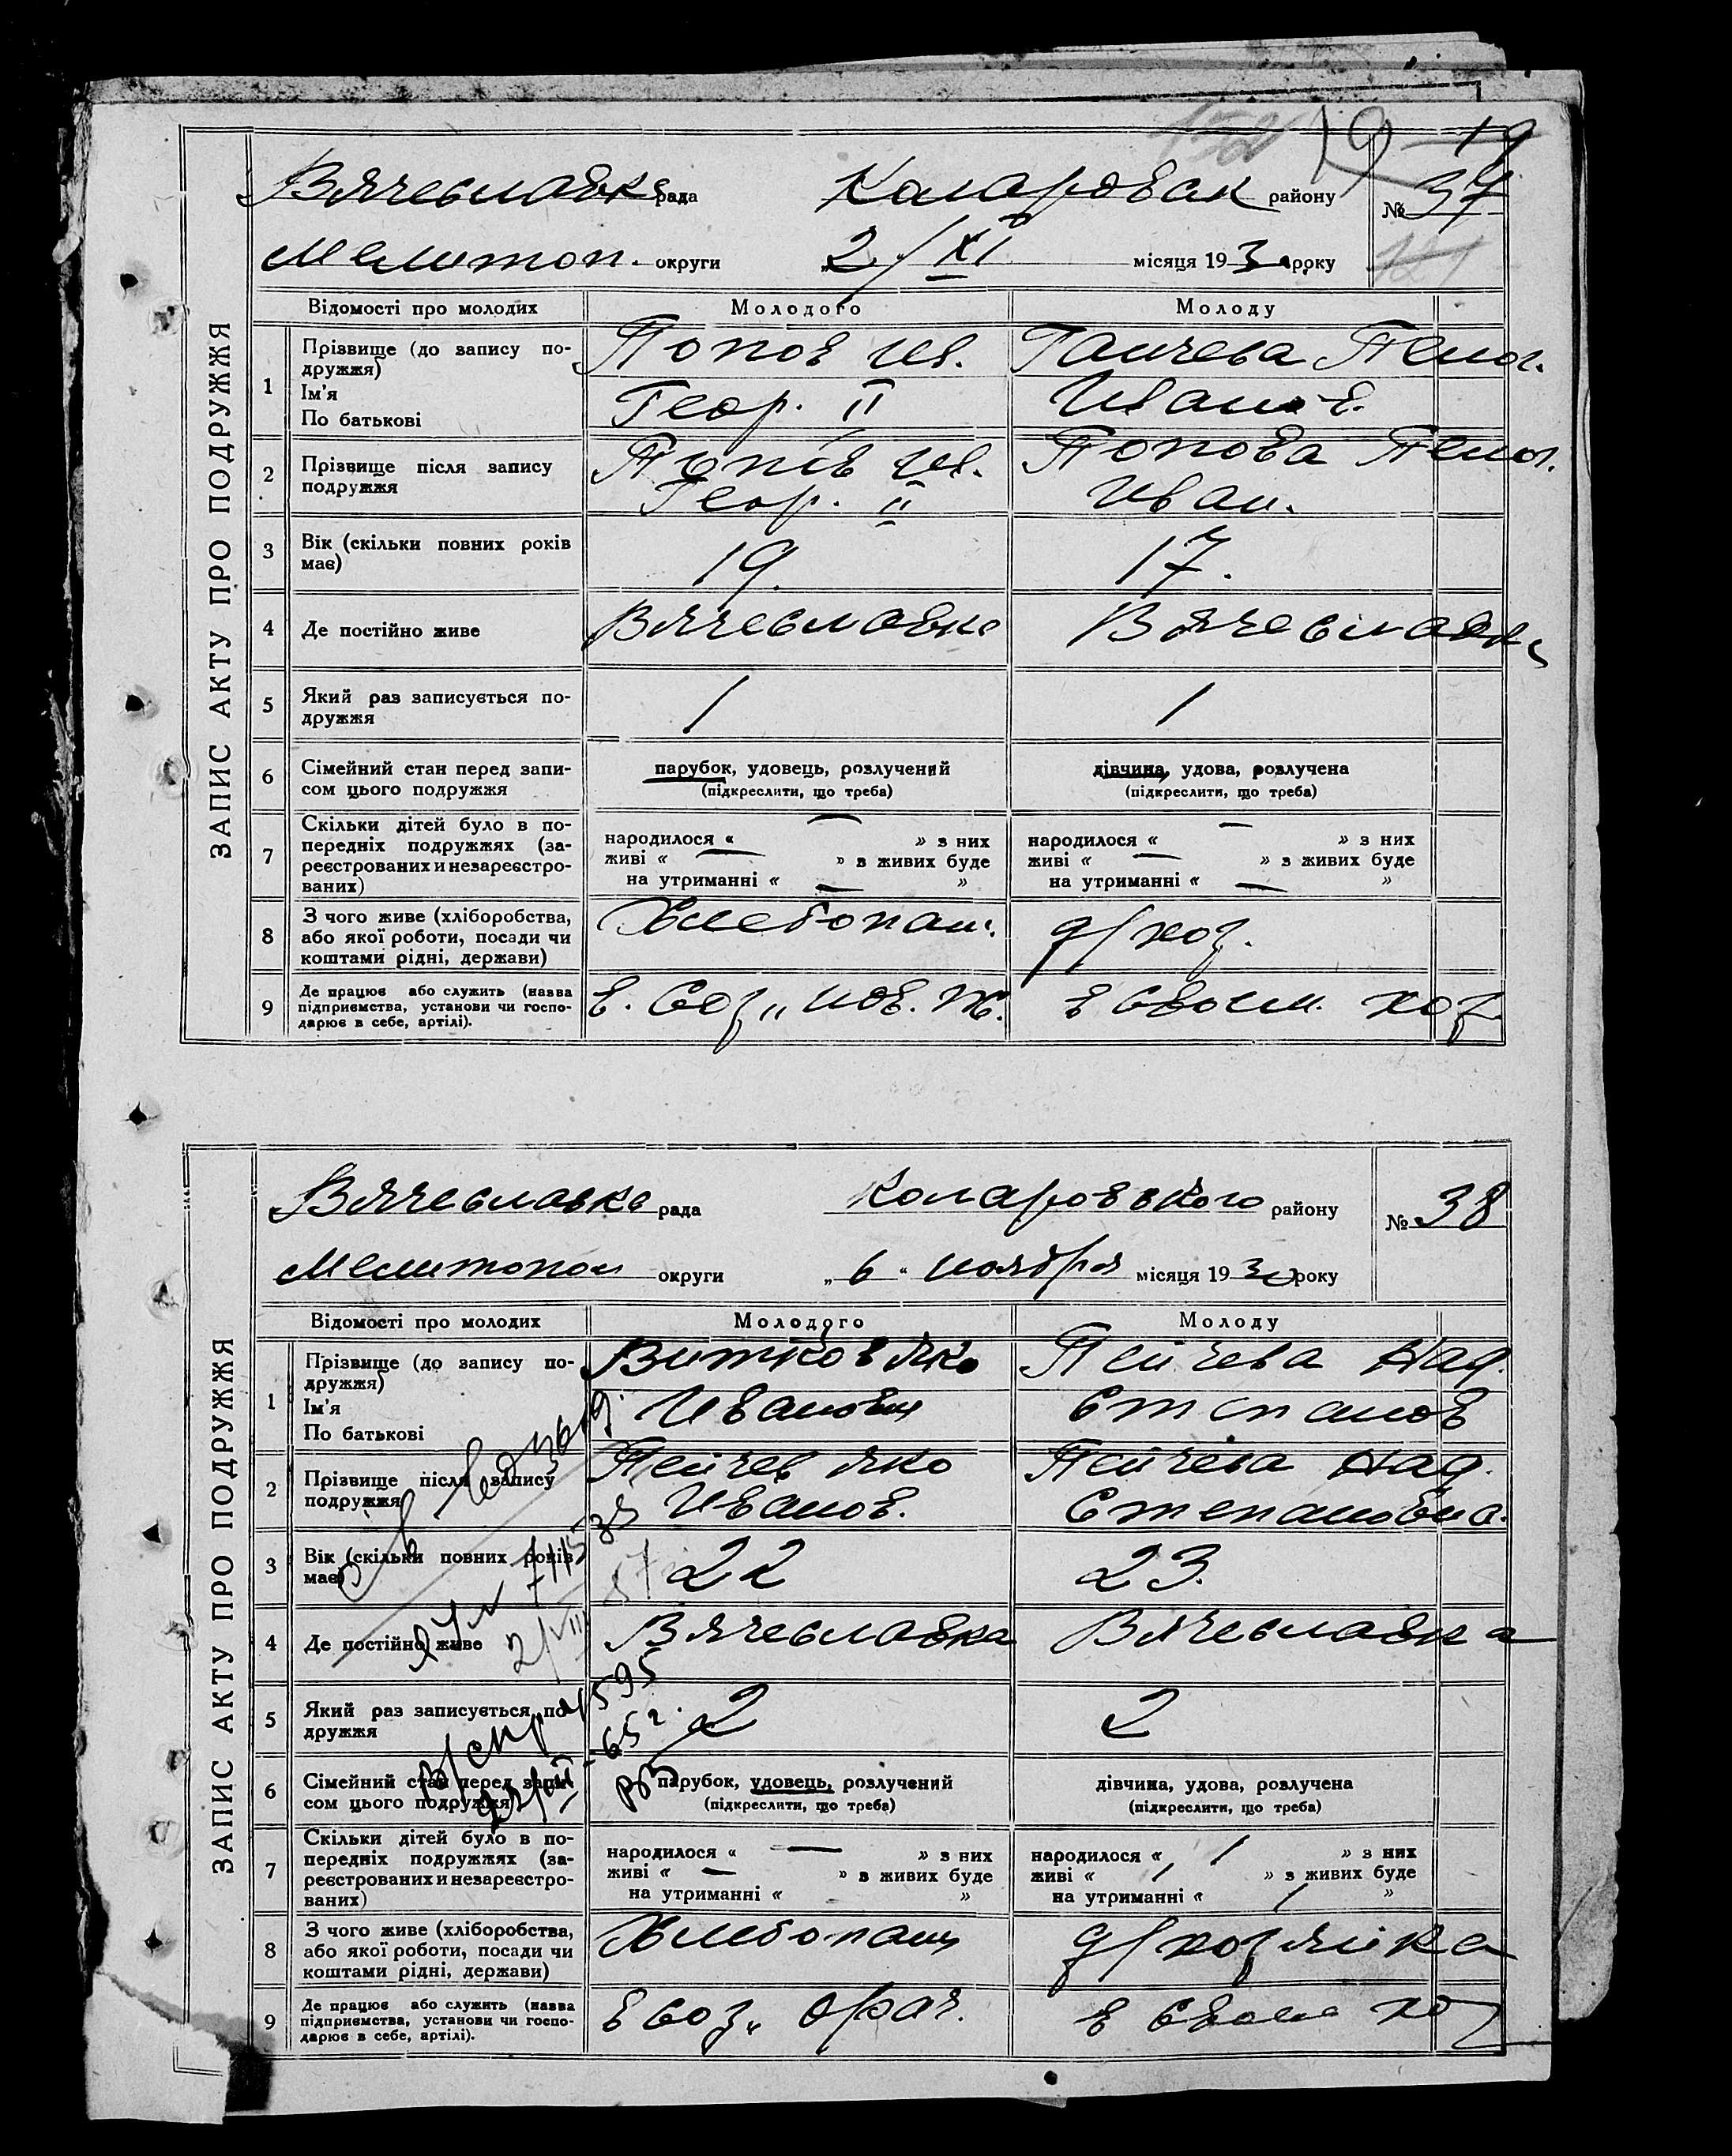 19
19
ЗАПИС АКТУ ПРО ПОДРУЖЖЯ
Вячеславка рада Коларовск району № 37
Мелитоп. округи 2/XI місяця 1930 року
Відомості про молодих Молодого Молоду
1 Прізвище (до запису по-
дружжя)
Ім'я
По батькові
Попов Ив.
Геор. II
Ганчева Пелаг.
Иванов.
2 Прізвище після запису
подружжя
Попов Ив.
Геор. II
Попова Пелаг.
Иван.
3 Вік (скільки повних років
має)
19.
17.
4 Де постійно живе Вячеславка Вячеславка
5 Який раз записується по-
дружжя
1 1
6 Сімейний стан перед запи-
сом цього подружжя
парубок, удовець, розлучений
(підкреслити, що треба)
дівчина, удова, розлучена
(підкреслити, що треба)
7 Скільки дітей було в по-
передніх подружжях (за-
реєстрованих и незареєстро-
ваних)
народилося « — » з них
живі « — » з живих буде
на утриманні « — »
народилося « — » з них
живі « — » з живих буде
на утриманні « — »
8 З чого живе (хліборобства,
або якої роботи, посади чи
коштами рідні, держави)
Хлебопаш.
д/хоз.
9 Де працює або служить (назва
підприємства, установи чи госпо-
дарює в себе, артілі).
в. Соз „ нов. ж.
в своем. хоз
ЗАПИС АКТУ ПРО ПОДРУЖЖЯ
Вячеславка рада Коларовского району № 38
Мелитопол округи „ 6 " ноября місяця 1930 року
Відомості про молодих Молодого Молоду
1 Прізвище (до запису по-
дружжя)
Ім'я
По батькові
Витков Яко
Иванович
Пейчева Над.
Степанов
2 Прізвище після запису
подружжя
Пейчев Яко
Иванов.
Пейчева Над.
Степановна.
3 Вік (скільки повних років
має)
22
23.
4 Де постійно живе Вячеславка Вячеславка
5 Який раз записується по-
дружжя
2 2
6 Сімейний стан перед запи-
сом цього подружжя
парубок, удовець, розлучений
(підкреслити, що треба)
дівчина, удова, розлучена
(підкреслити, що треба)
7 Скільки дітей було в по-
передніх подружжях (за-
реєстрованих и незареєстро-
ваних)
народилося « — » з них
живі « — » з живих буде
на утриманні « »
народилося « 1 » з них
живі « 1 » з живих буде
на утриманні « 1 »
8 З чого живе (хліборобства,
або якої роботи, посади чи
коштами рідні, держави)
Хлебопаш
д/хозяйка
9 Де працює або служить (назва
підприємства, установи чи госпо-
дарює в себе, артілі).
в соз „
в своем хоз